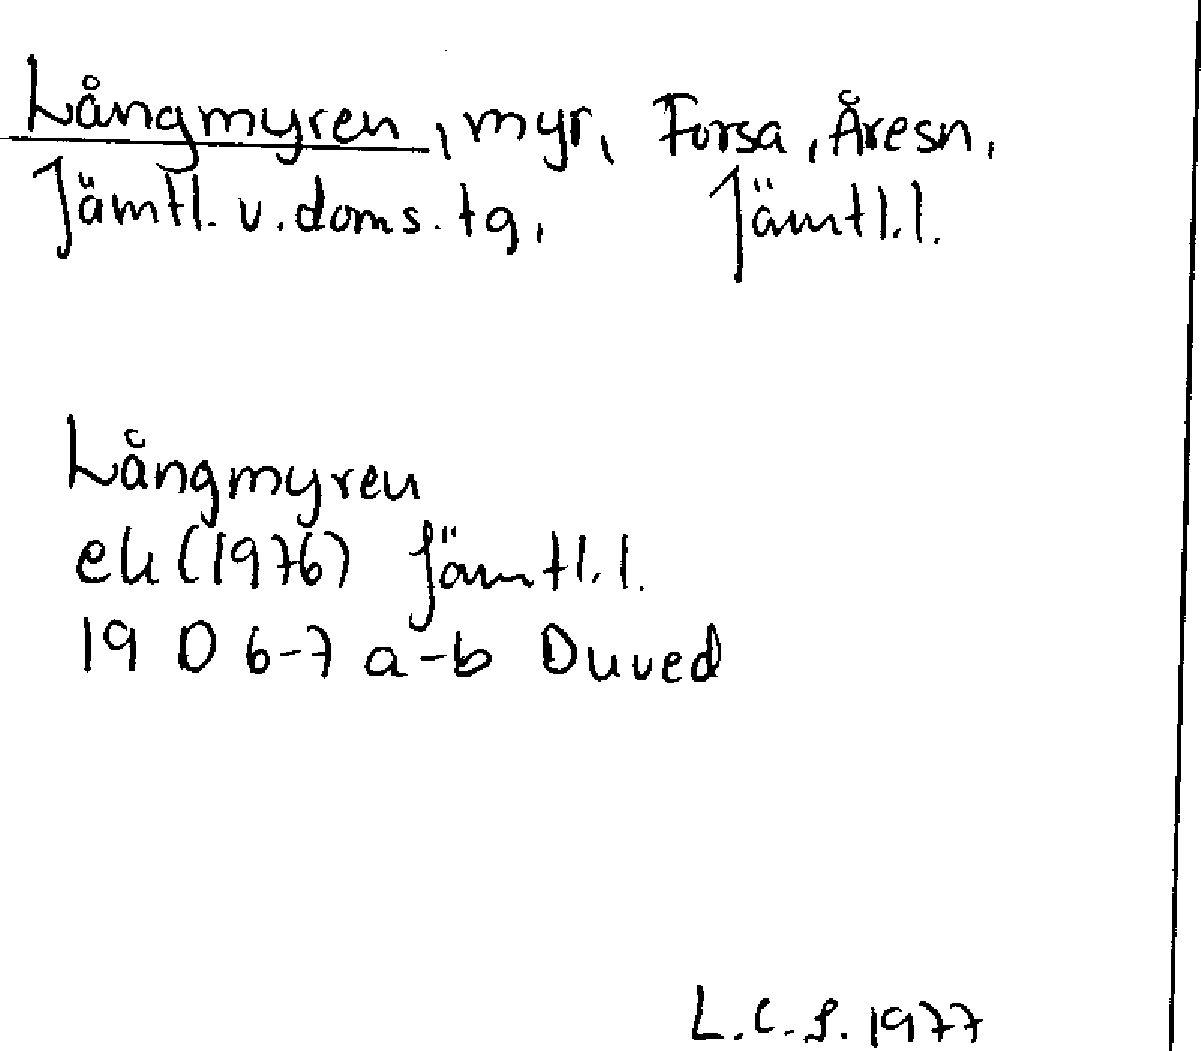 Långmyren, myr, Forsa, Åresn,
Jämtl. v. doms. tg, Jämtl.l.
Långmyren
ek (1976) Jämtl.l.
19 D 6-7 a-b Duved
L.C.S. 1977